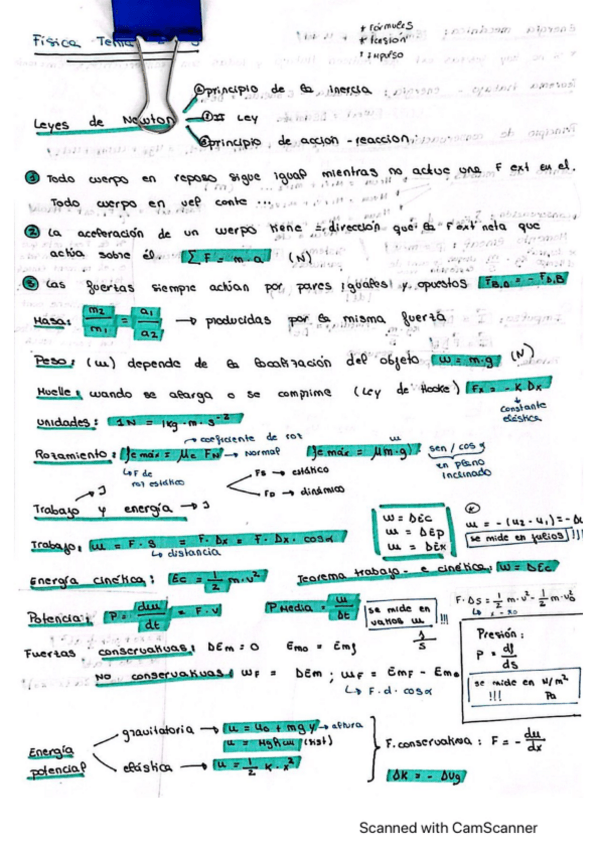 * Fórmules
* Presión
* impulso
Física Tema
Leyes de Newton
① principio de la inercia
② II Ley
③ principio de acción-reacción.
① Todo cuerpo en reposo sigue igual mientras no actue una F ext en el.
Todo cuerpo en vel conte ...
② La aceleración de un cuerpo tiene = dirección que la F ext neta que
actúa sobre él ΣF = m·a (N)
③ Las fuerzas siempre actúan por pares iguales y opuestos
Masa: m2/m1 = a1/a2 → producidas por la misma fuerza
Peso: (w) depende de la localización del objeto w = m·g (N)
Muelle: cuando se alarga o se comprime (Ley de Hooke) Fx = -K·Δx
constante elástica
Unidades: 1N = 1kg·m·s⁻²
→ coeficiente de roz
Rozamiento: fe máx = μe FN → Normal fe máx = μ m·g
w
sen / cos α
en plano inclinado
↳ F de roz estático
Fs → estático
FD → dinámico
Trabajo y energía → J
→ J
Trabajo: w = F·s = F·Δx = F·Δx·cosα
↳ distancia
w = ΔEc
w = ΔEp
w = ΔEx
w = -(u2-u1) = -Δu
se mide en julios !!!
Energía cinética: Ec = 1/2 m·v²
Teorema trabajo - e cinética: w = ΔEc
Potencia: P = dw/dt = F·v
P Media = w/Δt
se mide en vatios w !!!
J/s
F·Δs = 1/2 m·v² - 1/2 m·v0²
Presión:
P = df/ds
se mide en N/m²
!!! Pa
Fuerzas conservativas: ΔEm = 0 Emo = Emf
No conservativas: WF = ΔEm ; WF = EmF - Emo
↳ F·d·cosα
Energía potencial
gravitatoria → u = u0 + mgy → altura
elástica → u = 1/2 k·x²
F. conservativa: F = - du/dx
ΔK = - ΔUg
Scanned with CamScanner